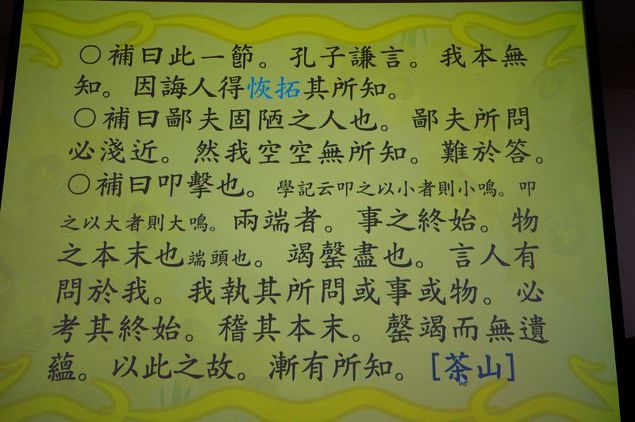 ○補曰此一節。孔子謙言。我本無
知。因誨人得恢拓其所知。
○補曰鄙夫固陋之人也。鄙夫所問
必淺近。然我空空無所知。難於答。
○補曰叩擊也。學記云叩之以小者則小鳴。叩
之以大者則大鳴。兩端者。事之終始。物
之本末也端頭也。竭罄盡也。言人有
問於我。我執其所問或事或物。必
考其終始。稽其本末。罄竭而無遺
蘊。以此之故。漸有所知。[茶山]